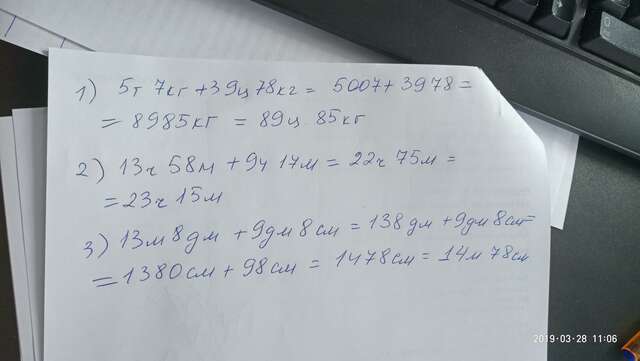 1) 5т 7кг + 39ц 78кг = 5007 + 3978 =
= 8985кг = 89ц 85кг
2) 13ч 58м + 9ч 17м = 22ч 75м =
= 23ч 15м
3) 13м 8дм + 9дм 8см = 138дм + 9дм 8см=
= 1380см + 98см = 1478см = 14м 78см
2019-03-28 11:06